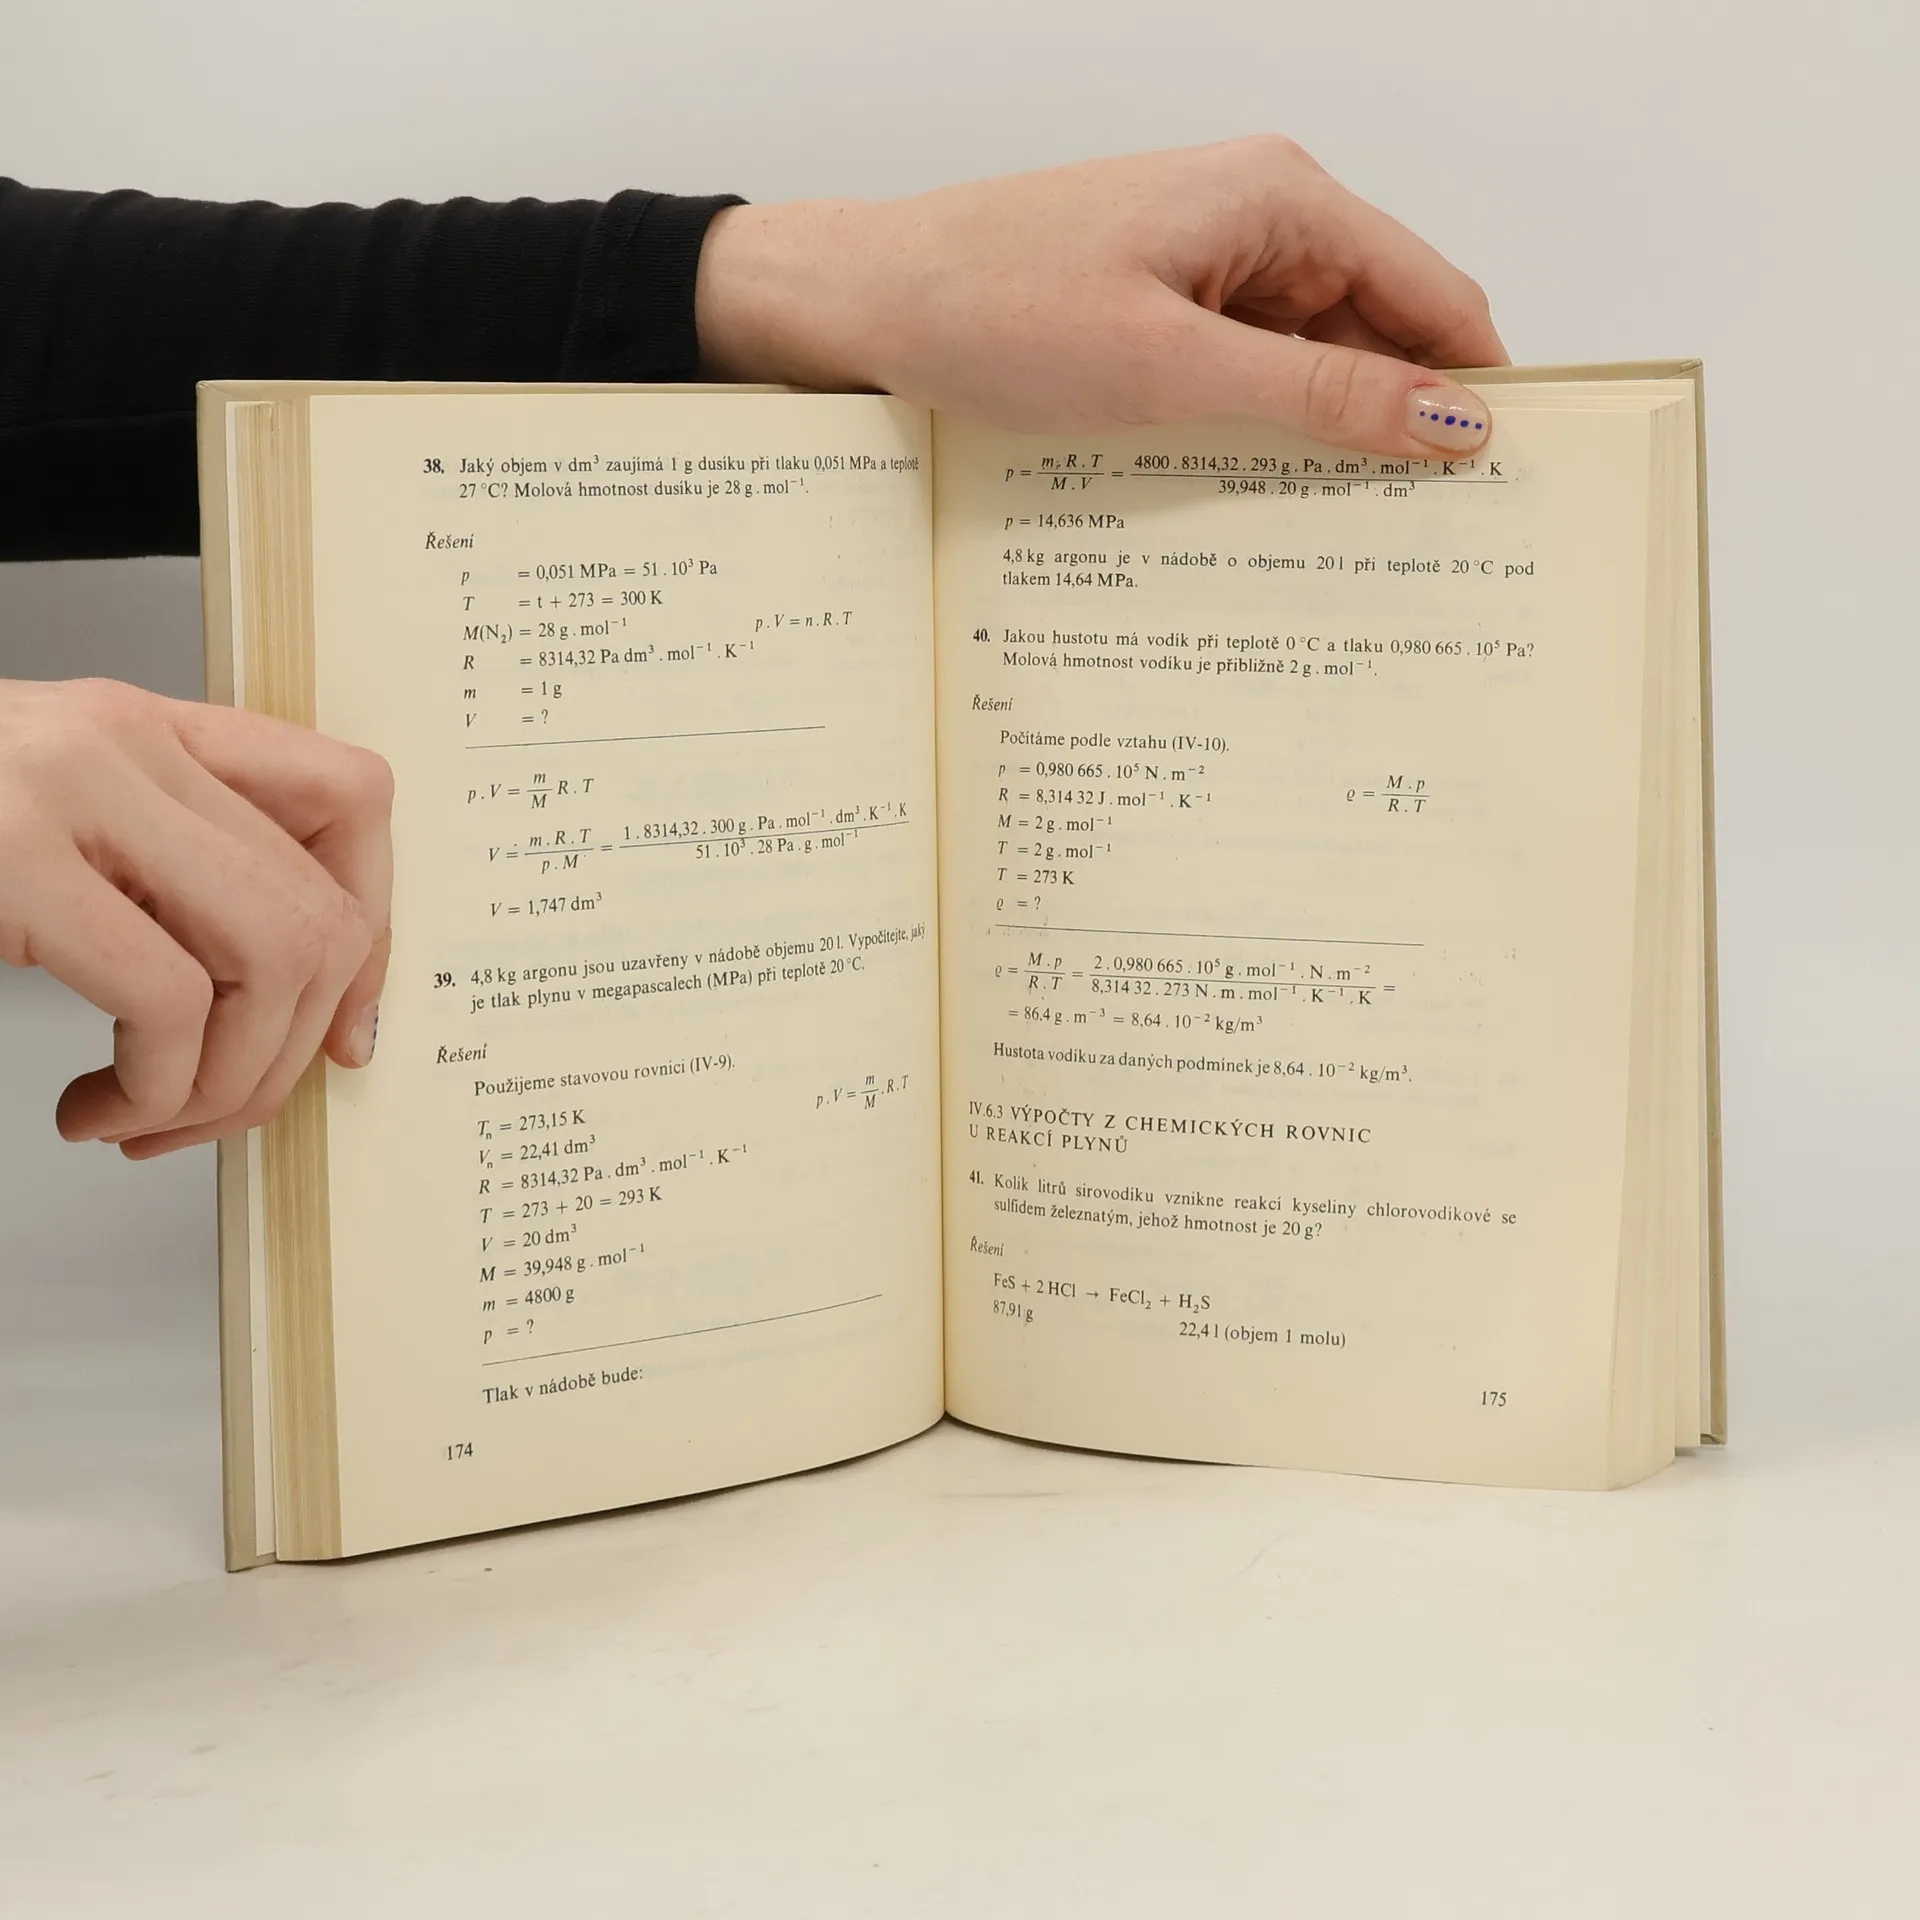 38. Jaký objem v dm³ zaujímá 1 g dusíku při tlaku 0,051 MPa a teplotě
27 °C? Molová hmotnost dusíku je 28 g . mol⁻¹.
Řešení
p = 0,051 MPa = 51 . 10³ Pa
T = t + 273 = 300 K
M(N₂) = 28 g . mol⁻¹ p . V = n . R . T
R = 8314,32 Pa dm³ . mol⁻¹ . K⁻¹
m = 1 g
V = ?
p . V = m/M R . T
V = m . R . T / p . M = 1 . 8314,32 . 300 g . Pa . mol⁻¹ . dm³ . K⁻¹ . K / 51 . 10³ . 28 Pa . g . mol⁻¹
V = 1,747 dm³
39. 4,8 kg argonu jsou uzavřeny v nádobě objemu 20 l. Vypočítejte, jaký
je tlak plynu v megapascalech (MPa) při teplotě 20 °C.
Řešení
Použijeme stavovou rovnici (IV-9).
Tₙ = 273,15 K p . V = m/M . R . T
Vₙ = 22,41 dm³
R = 8314,32 Pa . dm³ . mol⁻¹ . K⁻¹
T = 273 + 20 = 293 K
V = 20 dm³
M = 39,948 g . mol⁻¹
m = 4800 g
p = ?
Tlak v nádobě bude:
174
p = m . R . T / M . V = 4800 . 8314,32 . 293 g . Pa . dm³ . mol⁻¹ . K⁻¹ . K / 39,948 . 20 g . mol⁻¹ . dm³
p = 14,636 MPa
4,8 kg argonu je v nádobě o objemu 20 l při teplotě 20 °C pod
tlakem 14,64 MPa.
40. Jakou hustotu má vodík při teplotě 0 °C a tlaku 0,980 665 . 10⁵ Pa?
Molová hmotnost vodíku je přibližně 2 g . mol⁻¹.
Řešení
Počítáme podle vztahu (IV-10).
p = 0,980 665 . 10⁵ N . m⁻²
R = 8,314 32 J . mol⁻¹ . K⁻¹ ϱ = M . p / R . T
M = 2 g . mol⁻¹
T = 2 g . mol⁻¹
T = 273 K
ϱ = ?
ϱ = M . p / R . T = 2 . 0,980 665 . 10⁵ g . mol⁻¹ . N . m⁻² / 8,314 32 . 273 N . m . mol⁻¹ . K⁻¹ . K =
= 86,4 g . m⁻³ = 8,64 . 10⁻² kg/m³
Hustota vodíku za daných podmínek je 8,64 . 10⁻² kg/m³.
IV.6.3 VÝPOČTY Z CHEMICKÝCH ROVNIC
U REAKCÍ PLYNŮ
41. Kolik litrů sirovodíku vznikne reakcí kyseliny chlorovodíkové se
sulfidem železnatým, jehož hmotnost je 20 g?
Řešení
FeS + 2 HCl → FeCl₂ + H₂S
87,91 g
22,4 l (objem 1 molu)
175